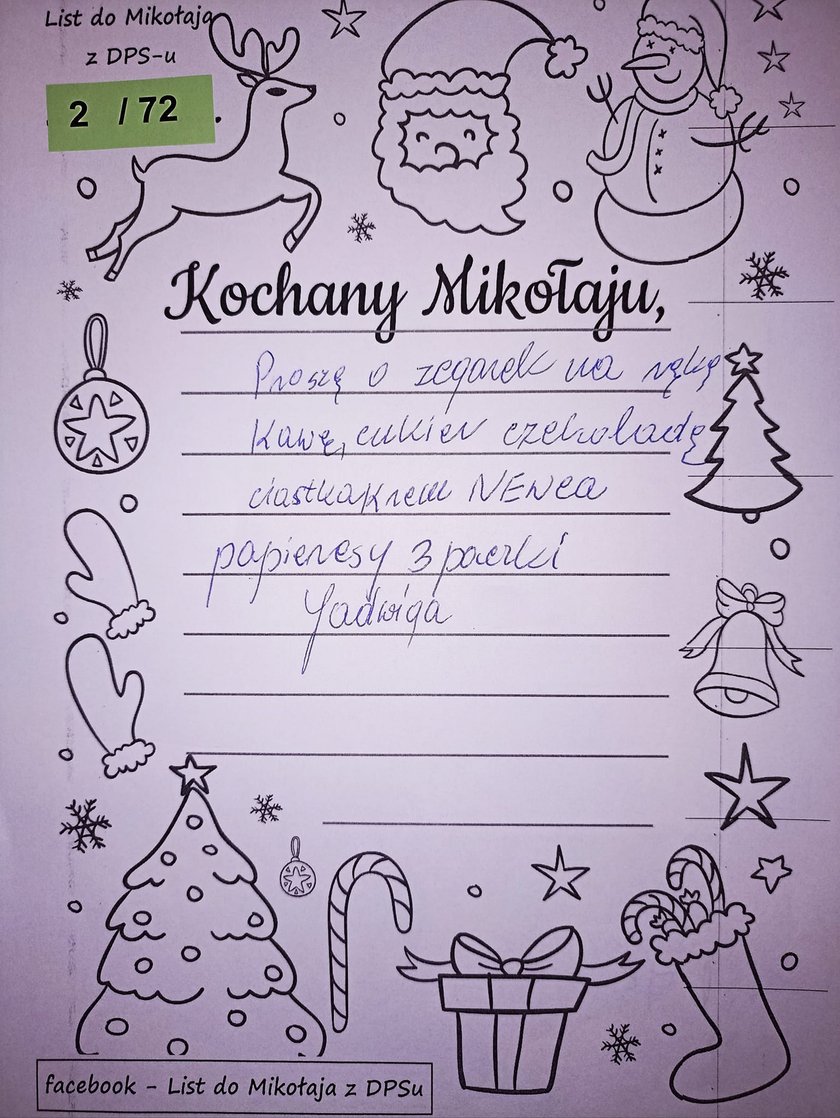 List do Mikołaja
z DPS-u
2 / 72
Kochany Mikołaju,
Proszę o zegarek na rękę
Kawę, cukier czekoladę
ciastka Krem NIVEA
papierosy 3 paczki
Jadwiga
facebook - List do Mikołaja z DPSu